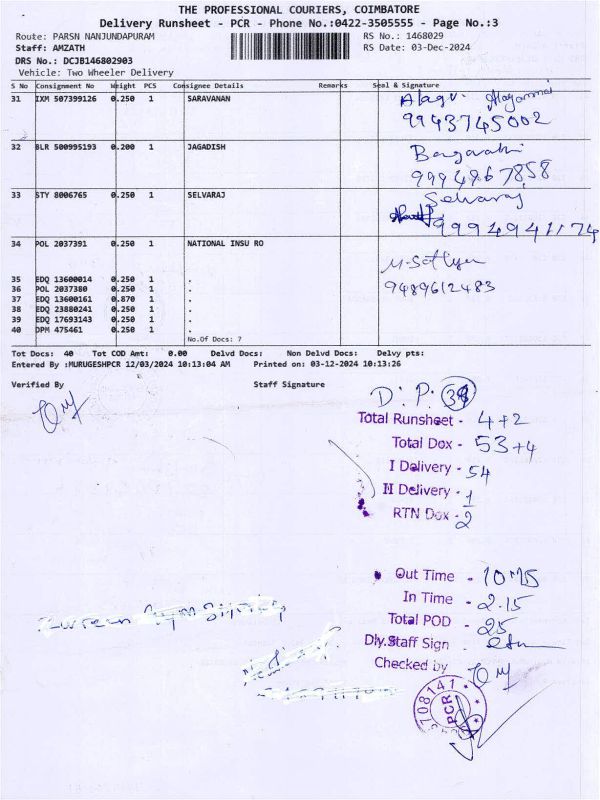 THE PROFESSIONAL COURIERS, COIMBATORE
Delivery Runsheet - PCR - Phone No.:0422-3505555 - Page No.:3
Route: PARSN NANJUNDAPURAM RS No.: 1468029
Staff: AMZATH RS Date: 03-Dec-2024
DRS No.: DCJB146802903
Vehicle: Two Wheeler Delivery
S No Consignment No Weight PCS Consignee Details Remarks Seal & Signature
31 IXM 507399126 0.250 1 SARAVANAN
9943745002
32 BLR 500995193 0.200 1 JAGADISH
9994967858
33 STY 8006765 0.250 1 SELVARAJ Selvaraj
9994941174
34 POL 2037391 0.250 1 NATIONAL INSU RO
35 EDQ 13600014 0.250 1 . 9489612483
36 POL 2037380 0.250 1 .
37 EDQ 13600161 0.870 1 .
38 EDQ 23880241 0.250 1 .
39 EDQ 17693143 0.250 1 .
40 DPM 475461 0.250 1 .
No.Of Docs: 7
Tot Docs: 40 Tot COD Amt: 0.00 Delvd Docs: Non Delvd Docs: Delvy pts:
Entered By :MURUGESHPCR 12/03/2024 10:13:04 AM Printed on: 03-12-2024 10:13:26
Verified By Staff Signature
D. P.
Total Runsheet - 4+2
Total Dox - 53+4
I Delivery - 54
II Delivery - 1
RTN Dox - 2
Out Time - 10.15
In Time - 2.15
Total POD - 25
Dly.Staff Sign -
Checked by
708141
PCR